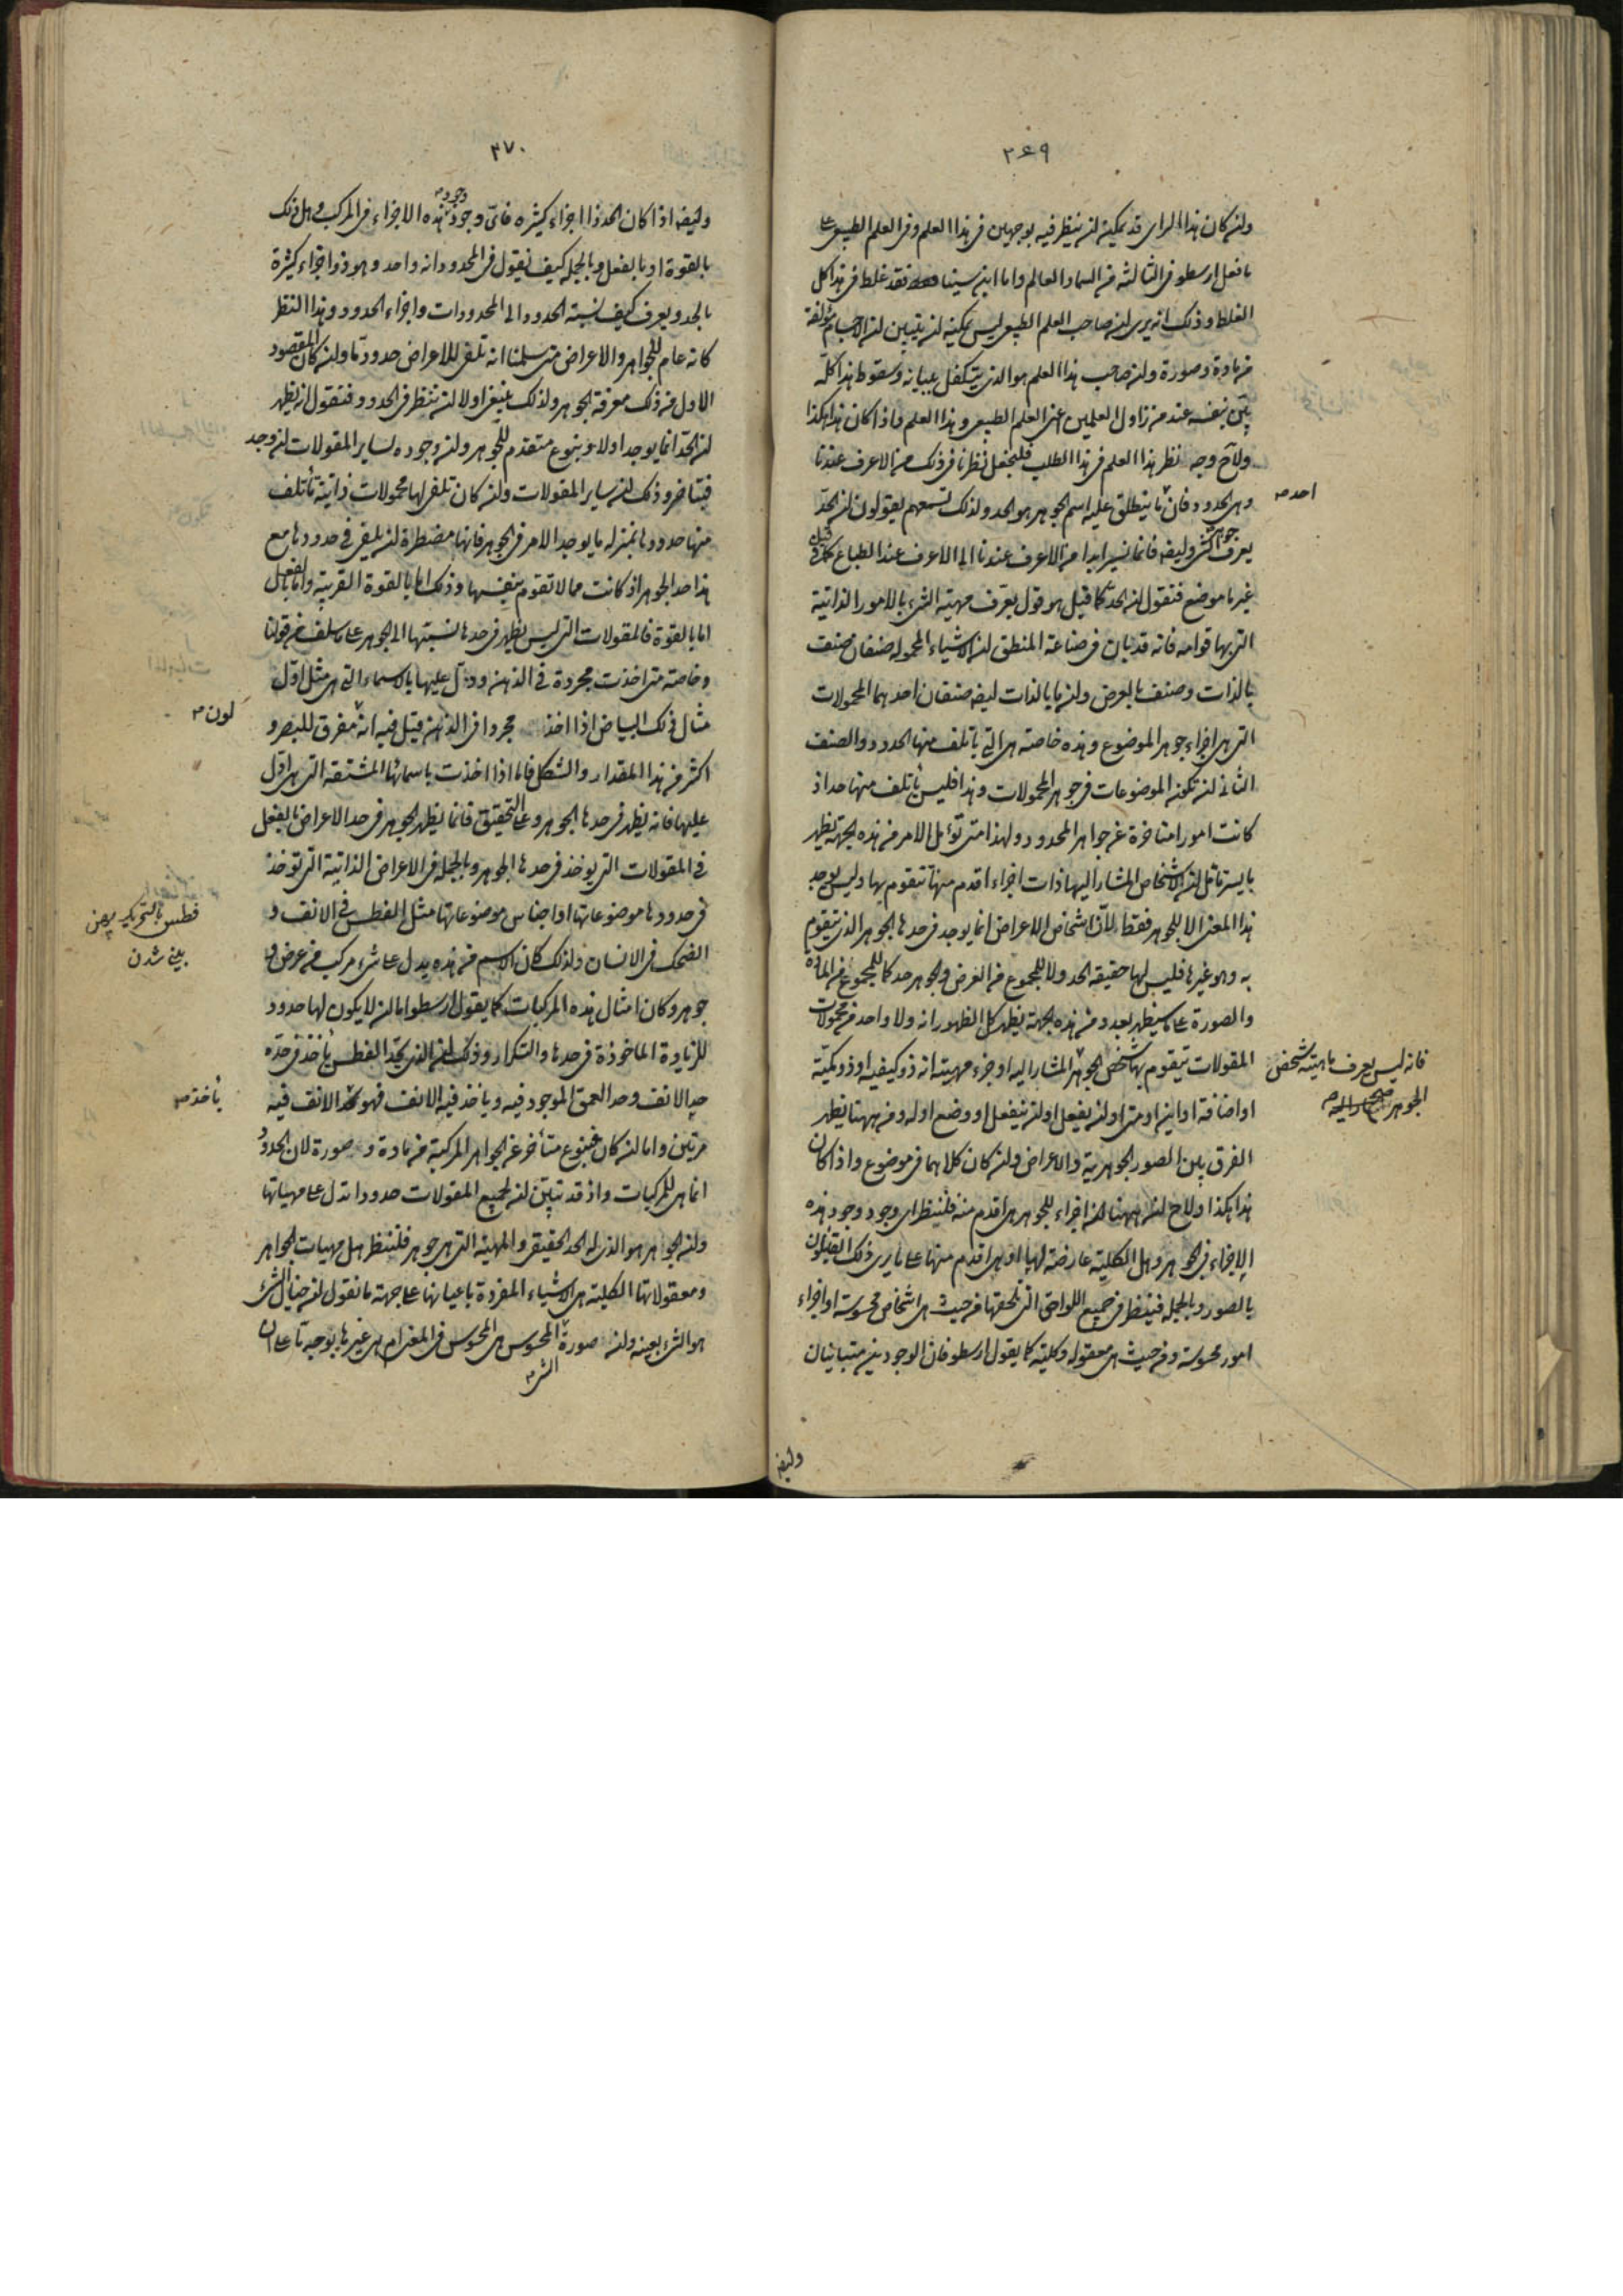 ٣٦٩
ولن كان هذا الراى قد يمكنه لن ينظر فيه بوجهين فى هذا العلم وفى العلم الطبيعى على
ما فعل ارسطو فى الثالثه من السماء والعالم واما ابن سينا فقد غلط فى هذا كل
الغلط وذلك انه يرى لن صاحب العلم الطبيعى ليس يمكنه لن يتبين لن الاجسام مؤلفة
من مادة وصورة ولن صاحب هذا العلم هو الذى يتكفل ببيانه وسقوط هذا كلّه
بيّن بنفسه عند من زاول العلمين اعنى العلم الطبيعى وهذا العلم واذا كان هذا هكذا
ولاح وجه نظر هذا العلم فى هذا الطلب فلنجعل نظرنا فى ذلك من الاعرف عندنا
وهى الحدود فان ما ينطلق عليه اسم الجوهر هو الحد ولذلك تسمعهم يقولون لن الحدّ
احد م
يعرف جوهر الشئ وايضا فانما نسير ابدا من الاعرف عندنا الى الاعرف عند الطباع كما قيل فى
غير ما موضع فنقول لن الحدّ كما قيل هو قول يعرف مهيّة الشئ بالامور الذاتية
التى بها قوامه فانه قد بان فى صناعة المنطق لن الاشياء المحموله صنفان صنف
بالذات وصنف بالعرض ولن ما بالذات ايضا صنفان احدهما المحمولات
التى هى اجزاء جوهر الموضوع وهذه خاصته هى التى ياتلف منها الحدود والصنف
الثانى لن تكون الموضوعات فى جوهر المحمولات وهذا فليس يأتلف منها حد اذ
كانت امورا متاخرة عن جواهر المحدود ولهذا متى تؤمل الامر من هذه الجهة يظهر
بايسر تامّل لن الاشخاص المشار اليها ذات اجزاء اقدم منها تتقوم بها وليس يوجد
هذا المعنى الا للجوهر فقط لانّ اشخاص الاعراض انما يوجد فى حدها الجوهر الذى يتقوم
به وهو غيرها فليس لها حقيقة الحد ولا للمجموع من العرض والجوهر حد كما للمجموع من المادة
والصورة على ما سيظهر بعد ومن هذه الجهة يظهر كل الظهور انه ولا واحد من محمولات
المقولات يتقوم بها شخص الجوهر المشار اليه او جزء مهيته انه ذو كيفيه او ذو كميّة
فانه ليس يعرف ماهيّة شخص
الجوهر
او اضافة او اين او متى او لن يفعل او لن ينفعل او وضع او له ومن ههنا يظهر
الفرق بين الصور الجوهرية والاعراض ولن كان كلاهما فى موضوع واذا كان
هذا هكذا ولاح لنا لن ههنا اجزاء للجوهر هى اقدم منه فلننظر اى وجود وجود هذه
الاجزاء فى الجوهر وهل الكلية عارضة لها او هى اقدم منها على ما يرى ذلك القائلون
بالصور وبالجمله فننظر فى جميع اللواحق التى تلحقها من حيث هى اشخاص محسوسة او اجزاء
امور محسوسة ومن حيث هى معقوله وكليّة كما يقول ارسطو فان الوجودين متباينان
وايضا
٣٧٠
وايضا اذا كان الحد ذا اجزاء كثيره فاىّ وجود وجود هذه الاجزاء فى المركب وهل ذلك
بالقوة او بالفعل وبالجمله كيف نقول فى المحدود انه واحد وهو ذو اجزاء كثيرة
بالحد ويعرف كيف نسبة الحدود الى المحدودات واجزاء الحدود وهذا النظر
كانه عام للجواهر والاعراض متى سلمنا انه تلفى للاعراض حدود ما ولن كان المقصود
الاول من ذلك معرفة الجوهر ولذلك ينبغى اولا لن ننظر فى الحدود فنقول انه يظهر
لن الحدّ انما يوجد اولا وبنوع متقدم للجوهر ولن وجوده لساير المقولات لن وجد
فبتاخر وذلك لن ساير المقولات ولن كان تلفى لها محمولات ذاتيّة تأتلف
منها حدودها بمنزله ما يوجد الامر فى الجوهر فانها مضطرة لن يلفى فى حدودها مع
هذا حد الجوهر اذ كانت مما لا تقوم بنفسها وذلك اما بالقوة القريبة واما بالفعل
اما بالقوة فالمقولات التى ليس يظهر فى حدها نسبتها الى الجوهر على ما سلف من قولنا
وخاصته متى اخذت مجردة فى الذهن ودلّ عليها بالاسماء التى هى مثل اوّل
مثال ذلك البياض اذا اخذ مجردا فى الذهن قيل فيه انه مفرق للبصر و
لون م
اكثر من هذا المقدار والشكل فاما اذا اخذت باسمائها المشتقة التى هى اول
عليها فانه يظهر فى حدها الجوهر وعلى التحقيق فانما يظهر الجوهر فى حد الاعراض بالفعل
فى المقولات التى يوخذ فى حدها الجوهر وبالجمله فى الاعراض الذاتية التى توخذ
فى حدودها موضوعاتها او اجناس موضوعاتها مثل الفطس فى الانف و
فطس بالتحريك پهن
بينى شدن
الضحك فى الانسان ولذلك كان الاسم من هذه يدل على شئ مركب من عرض و
جوهر وكان امثال هذه المركبات كما يقول ارسطو اما لن لا يكون لها حدود
للزيادة الماخوذة فى حدها والتكرار وذلك لن الذى يحدّ الفطس يأخذ فى حدّه
حد الانف وحد العمق الموجود فيه وياخذ فيه الانف فهو الانف فيه
يأخذ م
مرتين واما لن كان فبنوع متأخر عن الجواهر المركبة من مادة و صورة لان الحدود
انما هى للمركبات واذ قد تبيّن لن لجميع المقولات حدودا تدل على مهياتها
ولن الجوهر هو الذى له الحد الحقيقى والمهية التى هى جوهر فلننظر هل مهيات الجواهر
ومعقولاتها الكلية هى الاشياء المفردة باعيانها على جهة ما نقول لن خيال الشئ
هو الشئ بعينه ولن صورة الشئ المحسوس هى المحسوس فى المعنى ام هى غيرها بوجه ما على ان